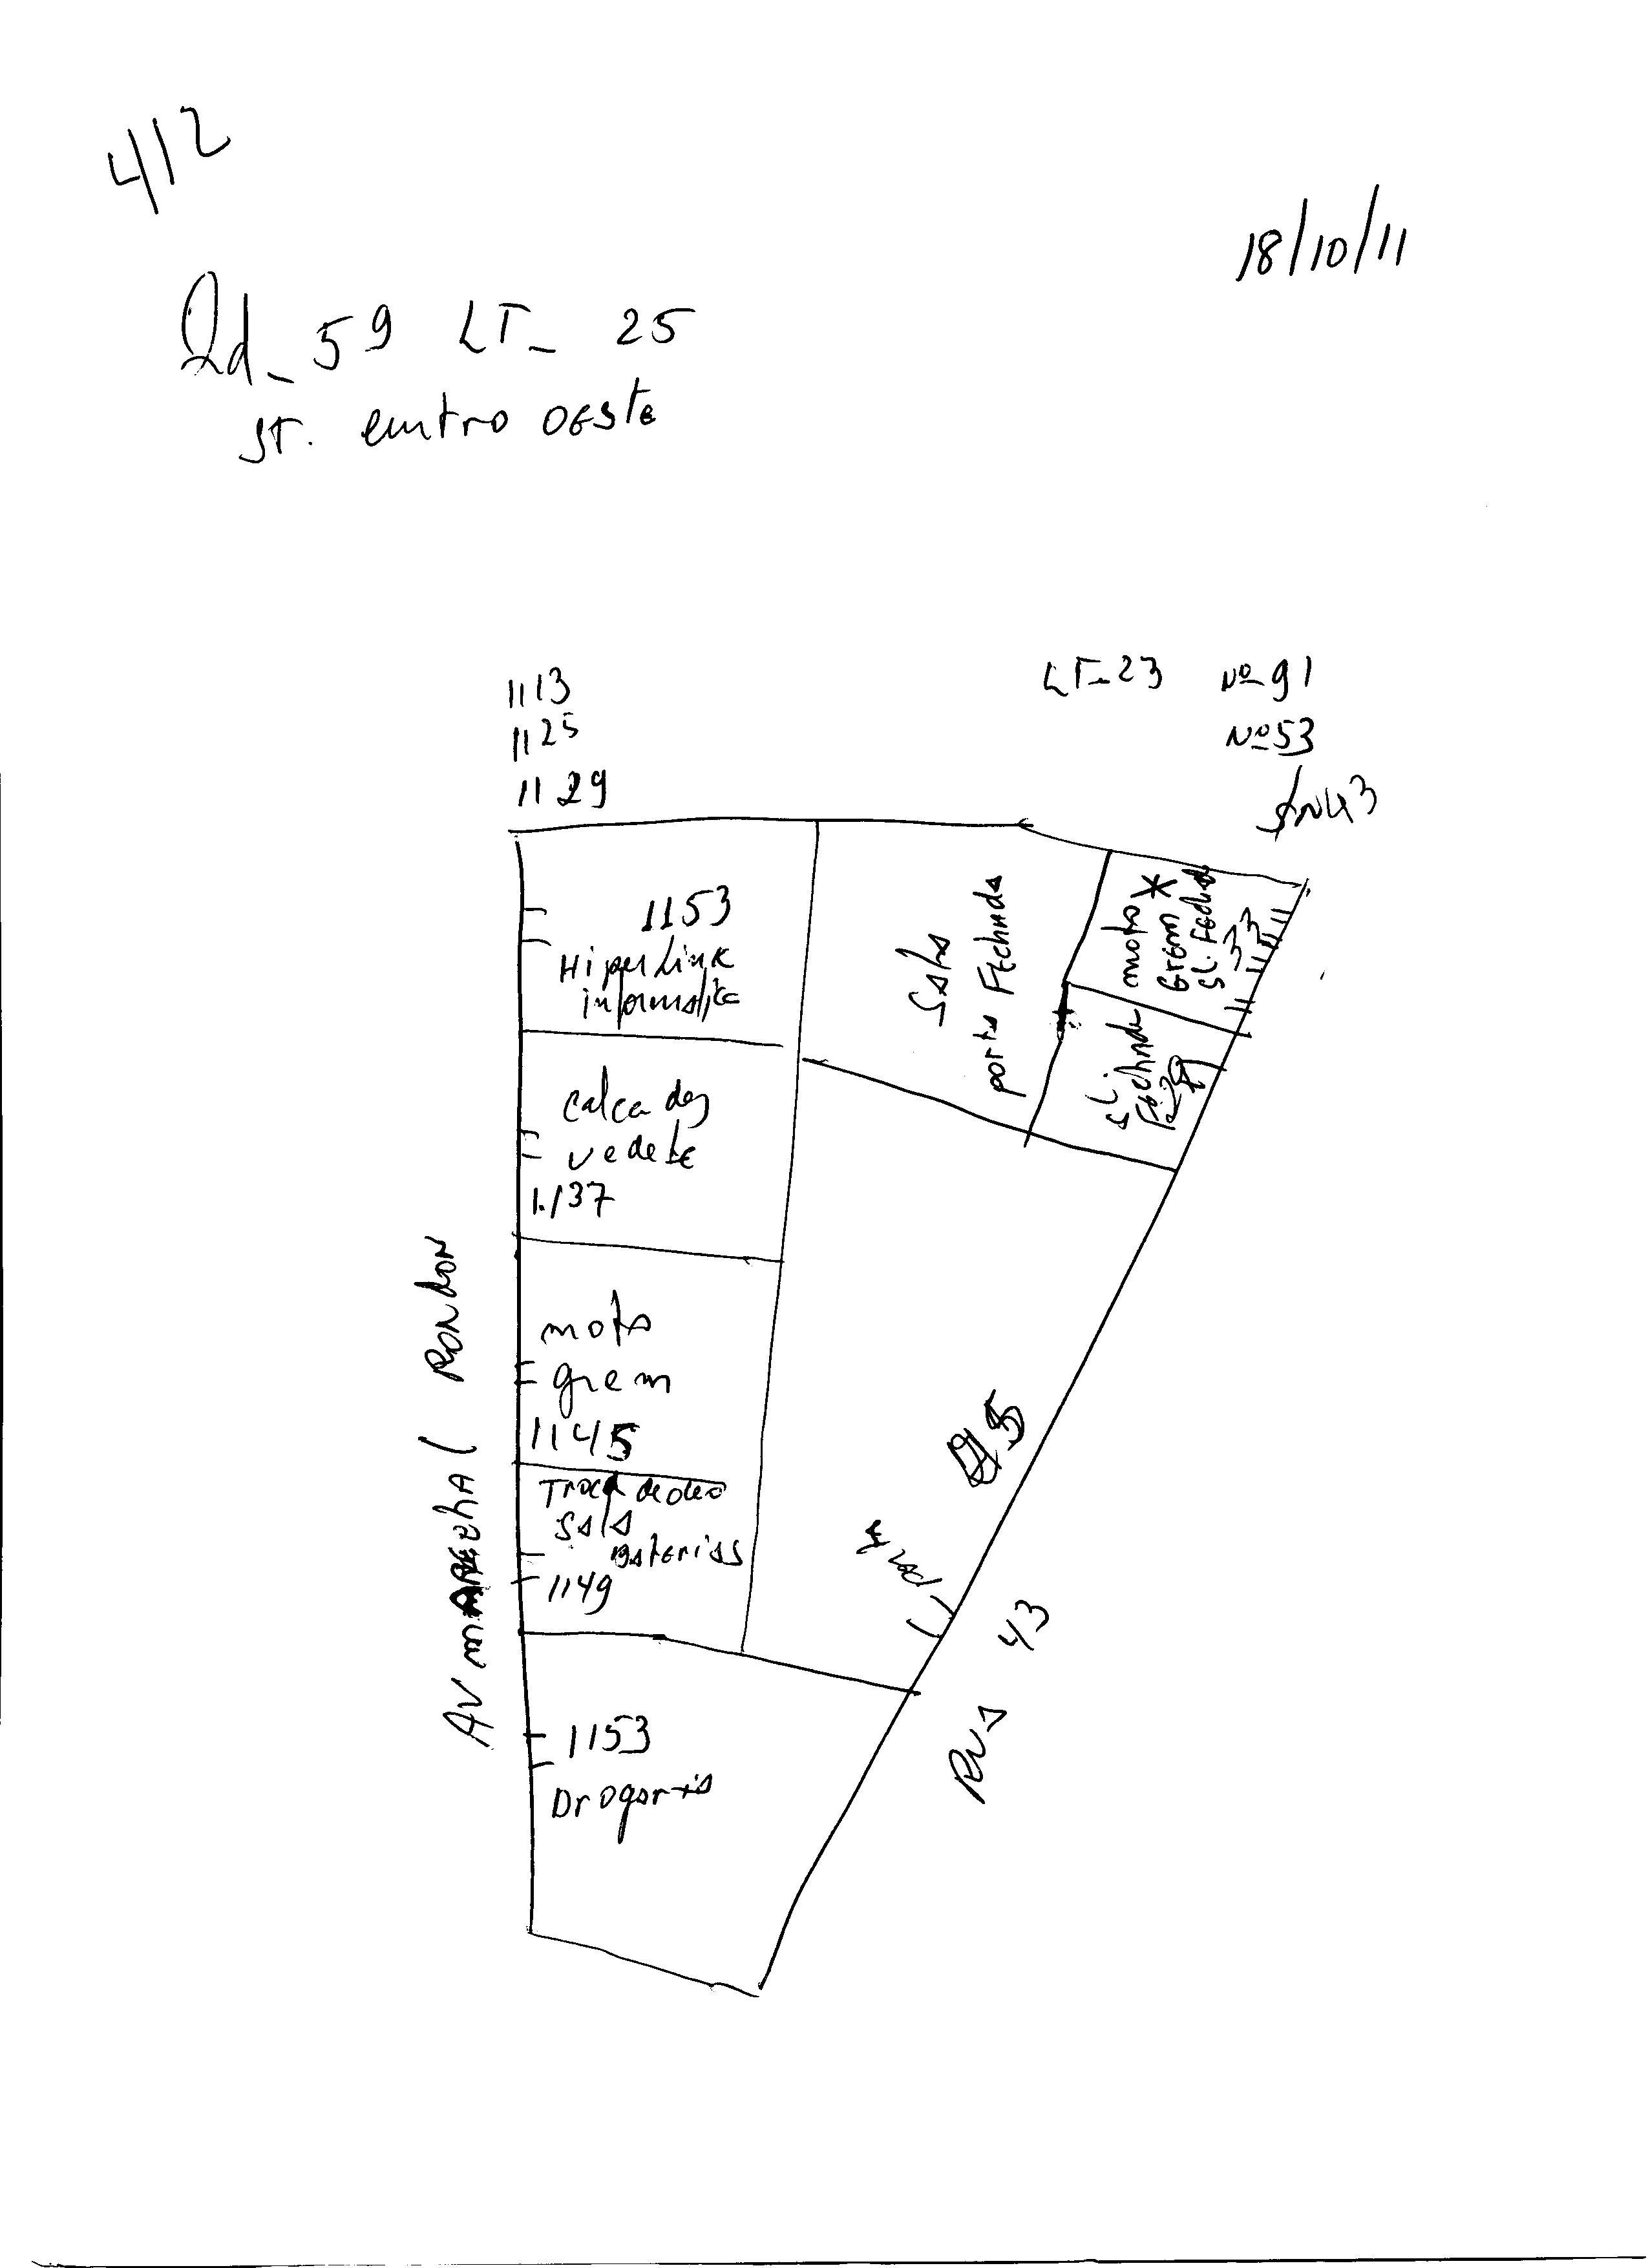 412
18/10/11
Qd_ 59 LT_ 25
ST. emtro OESTE
1113
1125
1129
LT_23 Nº 91
Nº 53
1153
HiperLink
informatica
calcados
vedete
1.137
moto
grem
1145
Troca de oleo
Sala
Baterias
1149
1153
Drogaria
Sala
porta Fechada
moto *
Grem *
SL. Fechada
33
SL.
Fechada
29
porta
Rua 43
AV mARECHAl RONDON